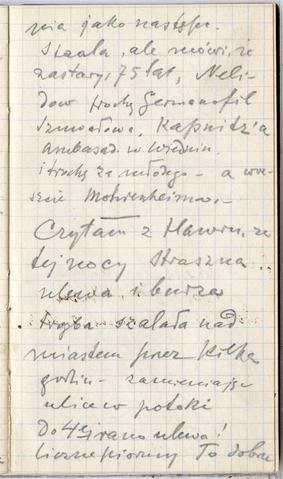 nia jako następu.
Staala, ale mówi, że
zastary, 75 lat, Neli-
dow trochę Germanofil
Kapnidz'a
ambasad. w Wiedniu
i trochę za młodego - a wre-
szcie Mohrenheima.-
Czytam z Hawru, że
tej nocy straszna
ulewa i burza
szalała nad
miastem przez kilka
godzin - zamieniając
ulice w potoki
Do 4ej rano ulewa!
liczne pioruny To dobre